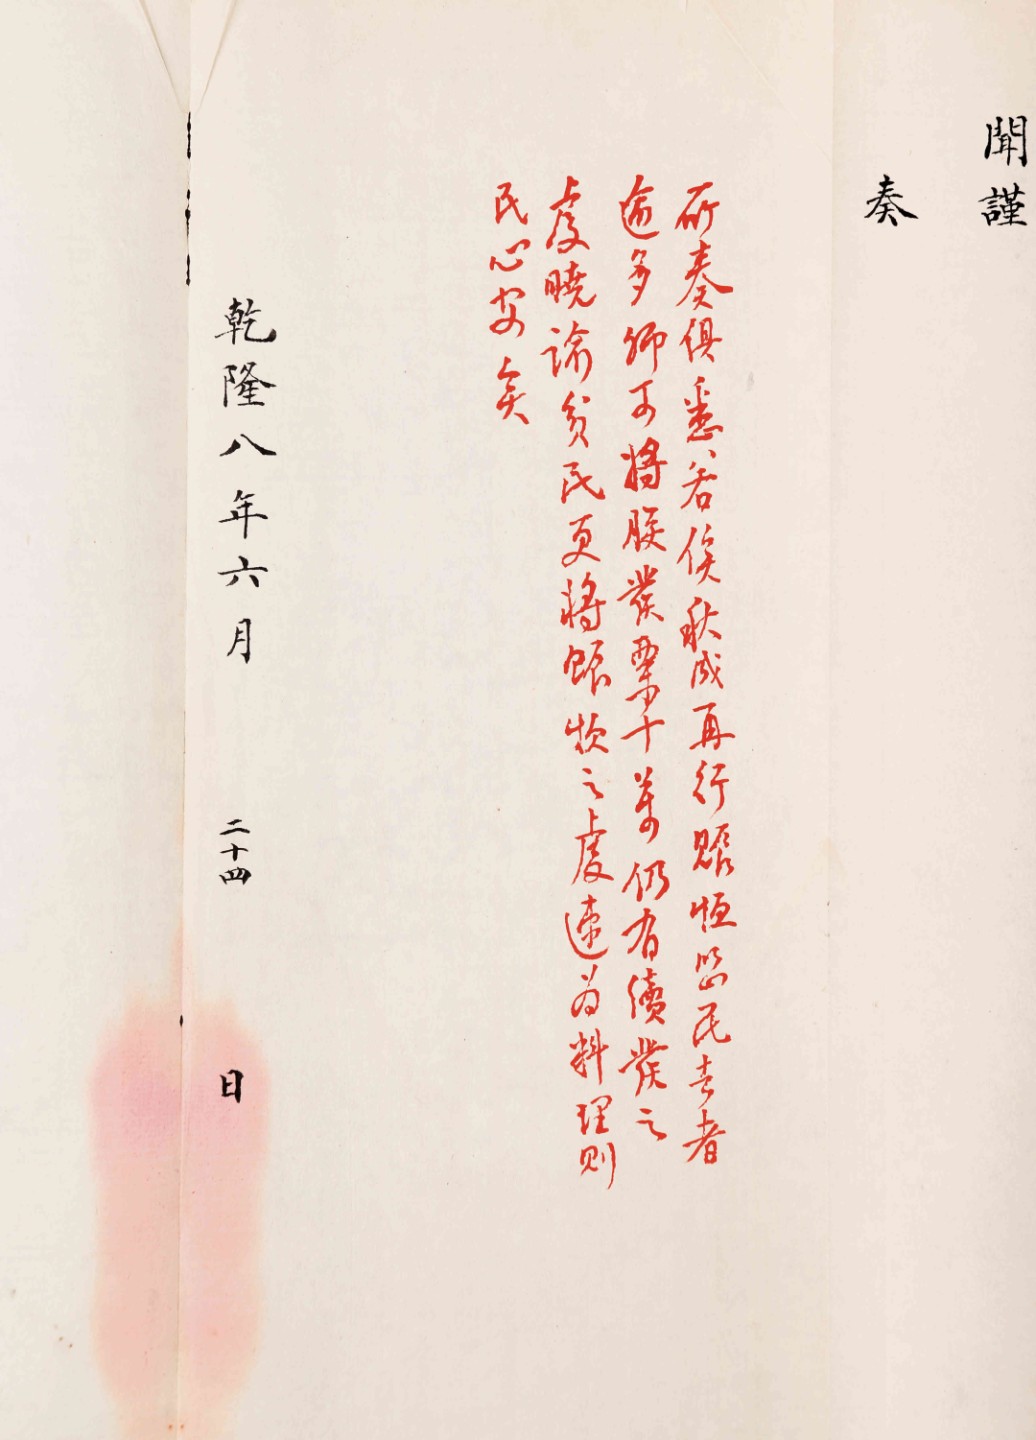 聞謹
奏
所奏俱悉若俟秋成再行賑恤恐民去者
逾多卿可將朕發粟十萬仍有續發之
處曉諭貧民更將賑之處速為料理則
民心安矣
乾隆八年六月 二十四 日